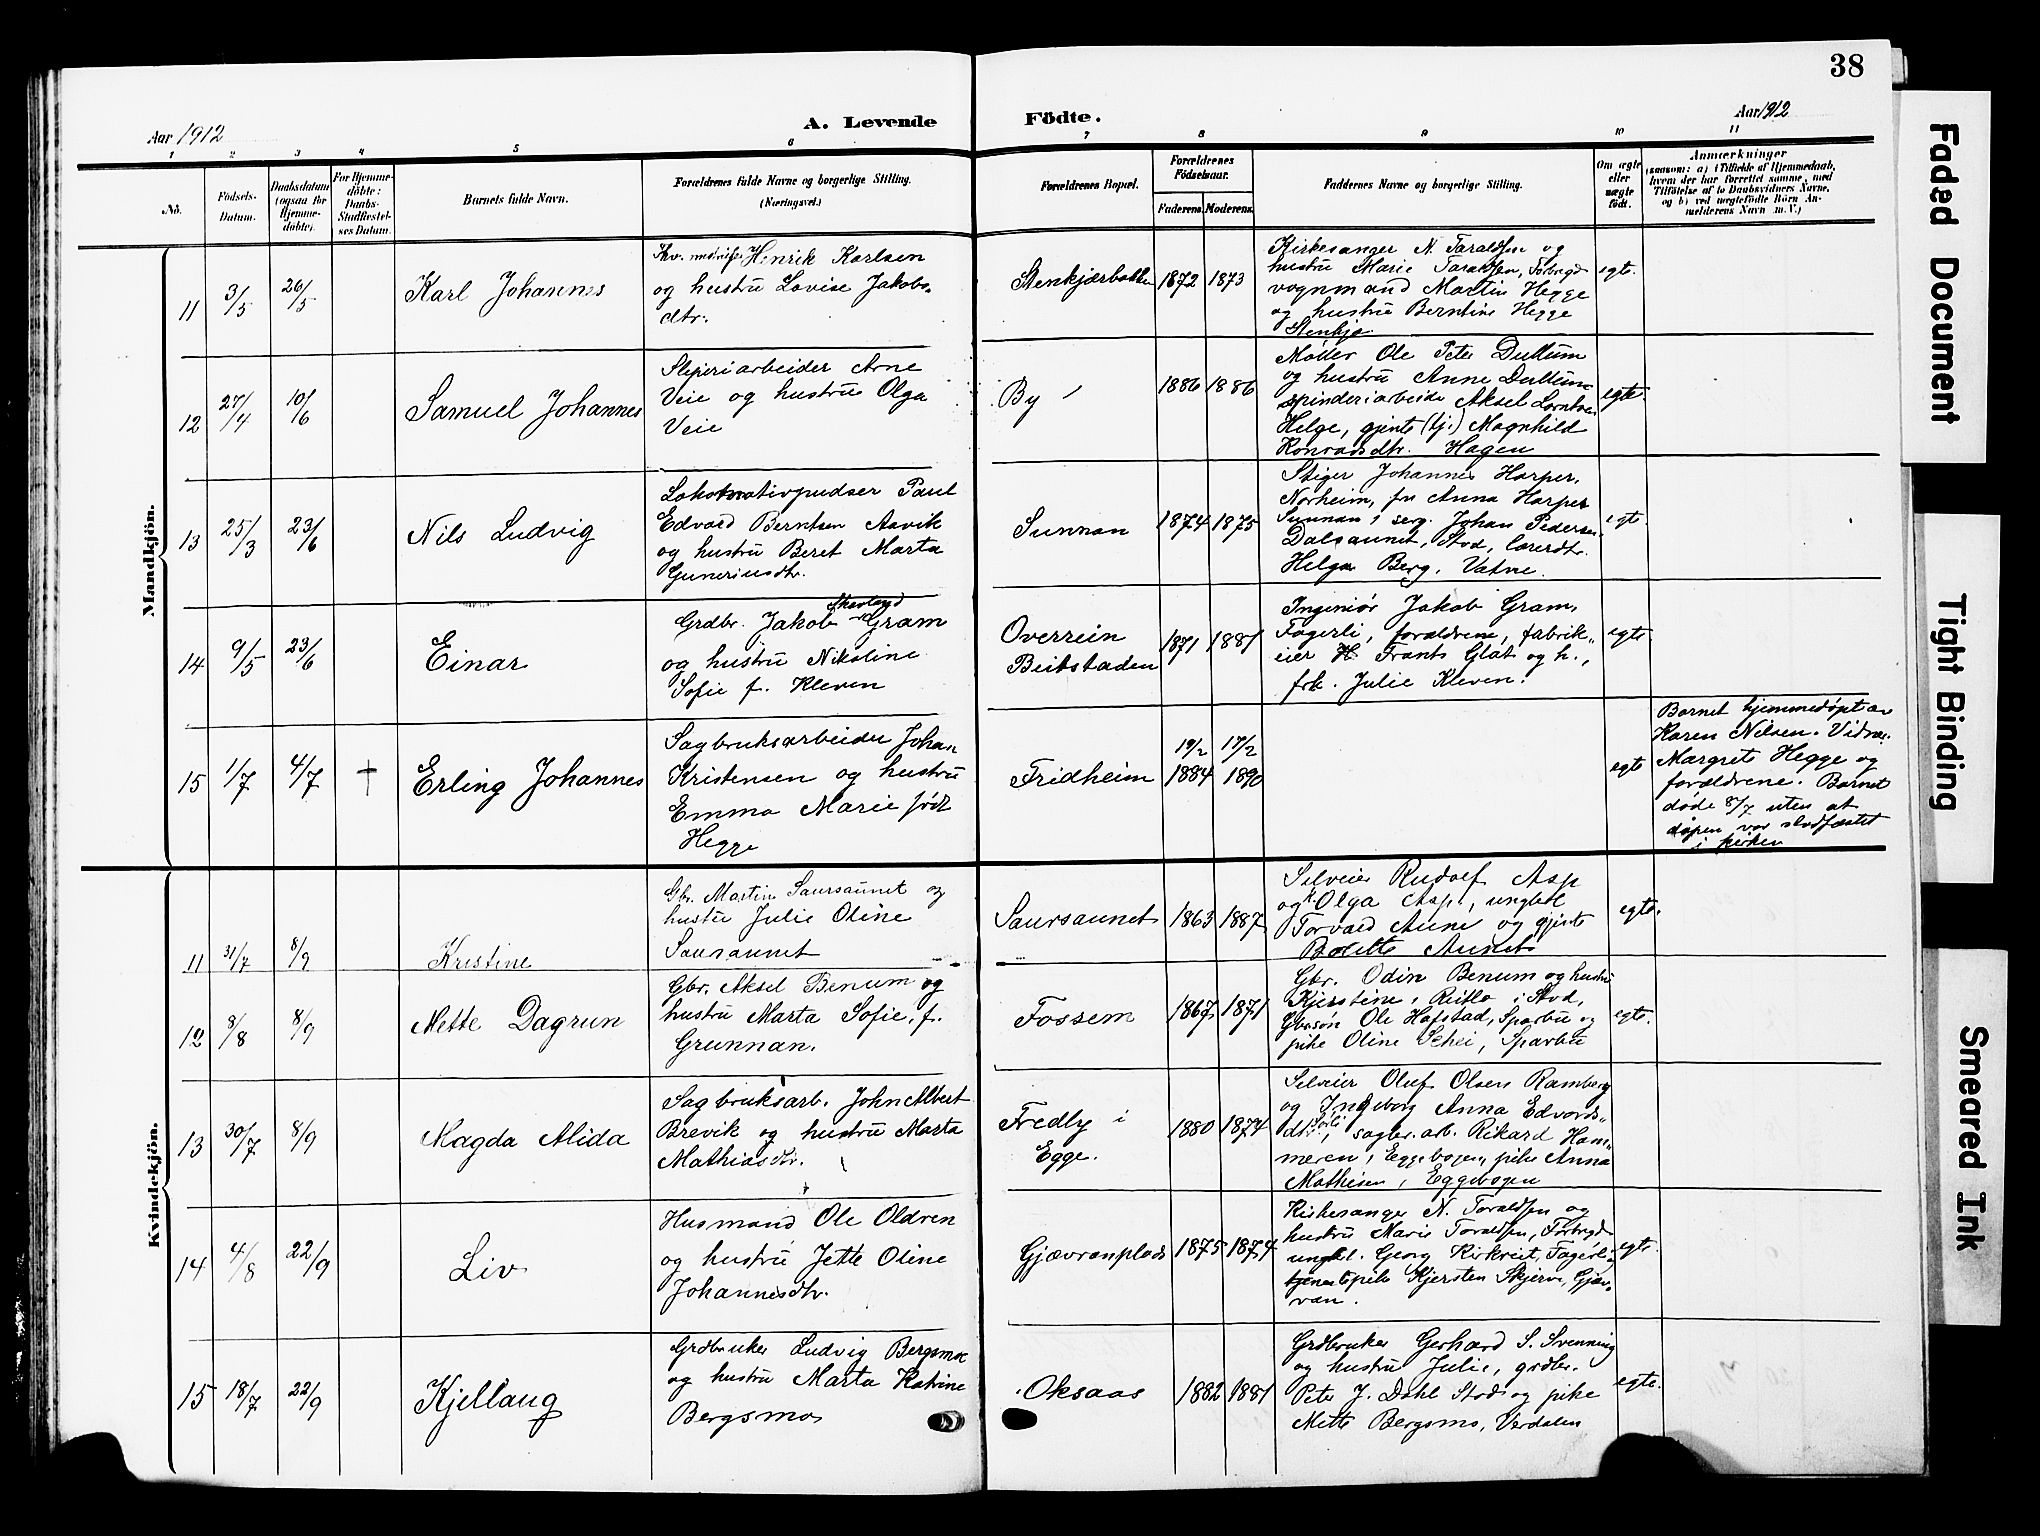 38
Aar 1912
A. Levende
Födte.
Aar 1912
1 2 3 4 5 6 7 8 9 10 11
No.
Födsels-
Datum.
Daabsdatum
(ogsaa for
Hjemme-
döbte).
For Hjemme-
döbte:
Daabs-
Stadfæstel-
ses Datum.
Barnets fulde Navn.
Forældrenes fulde Navne og borgerlige Stilling.
(Næringsvei.)
Forældrenes Bopæl.
Forældrenes
Födselsaar.
Faderens.
Moderens.
Faddernes Navne og borgerlige Stilling.
Om ægte
eller
uægte
födt.
Anmærkninger
(saasom: a) i Tilfælde af Hjemmedaab,
hvem der har forrettet samme, med
Tilföielse af to Daabsvidners Navne,
og b) ved uægtefödte Börn An-
melderens Navn m. V.)
Mandkjön.
11
3/5
26/5
Karl Johannes
Henrik Karlsen
og hustru Lovise Jakobs-
dtr.
Stenkjærbakken
1872
1873
Kirkesanger N. Taraldsen og
hustru Marie Taraldsen, Forbregd
vognmand Martin Hegge
og hustru Berntine Hegge
Stenkjæ.
egte.
12
27/4
10/6
Samuel Johannes
Sliperiarbeider Arne
Veie og hustru Olga
Veie
By
1886
1886
Møller Ole Peter Dullum
og hustru Anne Dullum
spinderiarbeide Aksel Lorntse
Helge, gjente (tj.) Magnhild
Konradsdtr. Hagen
egte.
13
25/3
23/6
Nils Ludvig
Lokomotivpudser Paul
Edvard Berntsen Aavik
og hustru Beret Marta
Guneriusdtr.
Sunnan
1874
1875
Stiger Johannes Harper,
Norheim, fru Anna Harper
Sunnan, serg. Johan Pedersen
Dalsaunet, Stod, lærerdtr.
Helga Berg, Vatne.
egte.
14
9/5
23/6
Einar
Grdbr. Jakob Gram
og hustru Nikoline
Sofie f. Kleven
Overrein
Beitstaden
1871
1881
Ingeniør Jakob Gram,
Fagerli, forældrene, fabrik-
eier H Frants Glat og h.,
frk. Julie Kleven.
egte
15
1/7
4/7
†
Erling Johannes
Sagbruksarbeider Johan
Kristensen og hustru
Emma Marie født
Hegge
Fridheim
19/2 1884
17/2 1890
egte
Barnet hjemmedøpt av
Karen Nilsen. Vidner
Margrete Hegge og
forældrene. Barnet
døde 8/7 uten at
døpen var stadfæstet
i kirken
Kvindekjön.
11
31/7
8/9
Kristine
Gbr. Martin Saursaunet og
hustru Julie Oline
Saursaunet
Saursaunet
1863
1887
Selveier Rudolf Asp
og k. Olga Asp, ungkl
Torvald Aune og gjente
Bolette Aunet
egte.
12
8/8
8/9
Mette Dagrun
Gbr. Aksel Benum og
hustru Marta Sofie, f.
Grunnan.
Fossem
1867
1871
Gbr. Odin Benum og hustru
Kjerstine, Reitlo i Stod,
Gbrsøn Ole Hafstad, Sparbu og
pike Oline Schei, Sparbu
egte.
13
30/7
8/9
Magda Alida
Sagbruksarb. John Albert
Brevik og hustru Marta
Mathiasdtr.
Fredly i
Egge.
1880
1874
Selveier Oluf Olsen Ramberg
og Ingeborg Anna Edvards-
dtr, sagbr. arb. Rikard Ham-
meren, Eggebogen, pike Anna
Mathisen, Eggebogen
14
4/8
22/9
Liv
Husmand Ole Oldren
og hustru Jette Oline
Johannesdtr.
Gjævranplads
1875
1874
Kirkesanger N. Taraldsen og
hustru Marie Taraldsen, Forbregd
ungkl. Georg Kirkreit, Fagerli
pike Kjersten Skjerve, Gjæv-
ran.
egte.
15
18/7
22/9
Kjellaug
Grdbruker Ludvig Bergsmo
og hustru Marta Katrine
Bergsmo
Oksaas
1882
1881
Grdbruker Gerhard S. Svenning
og hustru Julie, grdbr.
Peter J. Dahl Stod og pike
Mette Bergsmo, Verdalen
egte.
Faded Document
Tight Binding
Smeared Ink